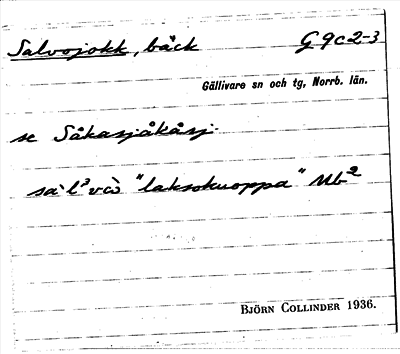 Salvojokk, bäck G 9c2-3
Gällivare sn och tg, Norrb. län.
se Såkasjåkåsj.
sa`l³vɔ̀ "laksokuoppa" Nb²
BJÖRN COLLINDER 1936.